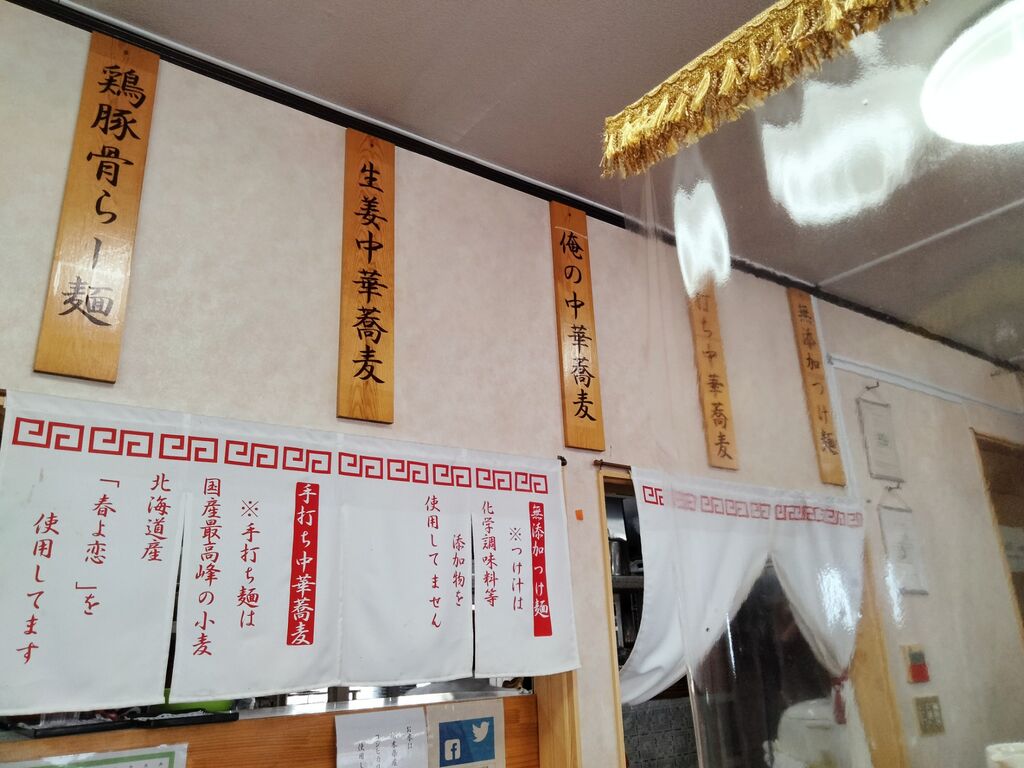 鶏豚骨らー麺
生姜中華蕎麦
俺の中華蕎麦
打ち中華蕎麦
無添加つけ麺
無添加つけ麺
※つけ汁は
化学調味料等
添加物を
使用してません
手打ち中華蕎麦
※手打ち麺は
国産最高峰の小麦
北海道産
「春よ恋」を
使用してます